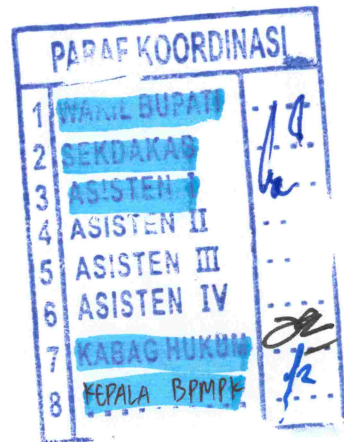 PARAF KOORDINASI
1 WAKIL BUPATI
2 SEKDAKAB
3 ASISTEN I
4 ASISTEN II
5 ASISTEN III
6 ASISTEN IV
7 KABAG HUKUM
8 KEPALA BPMPK